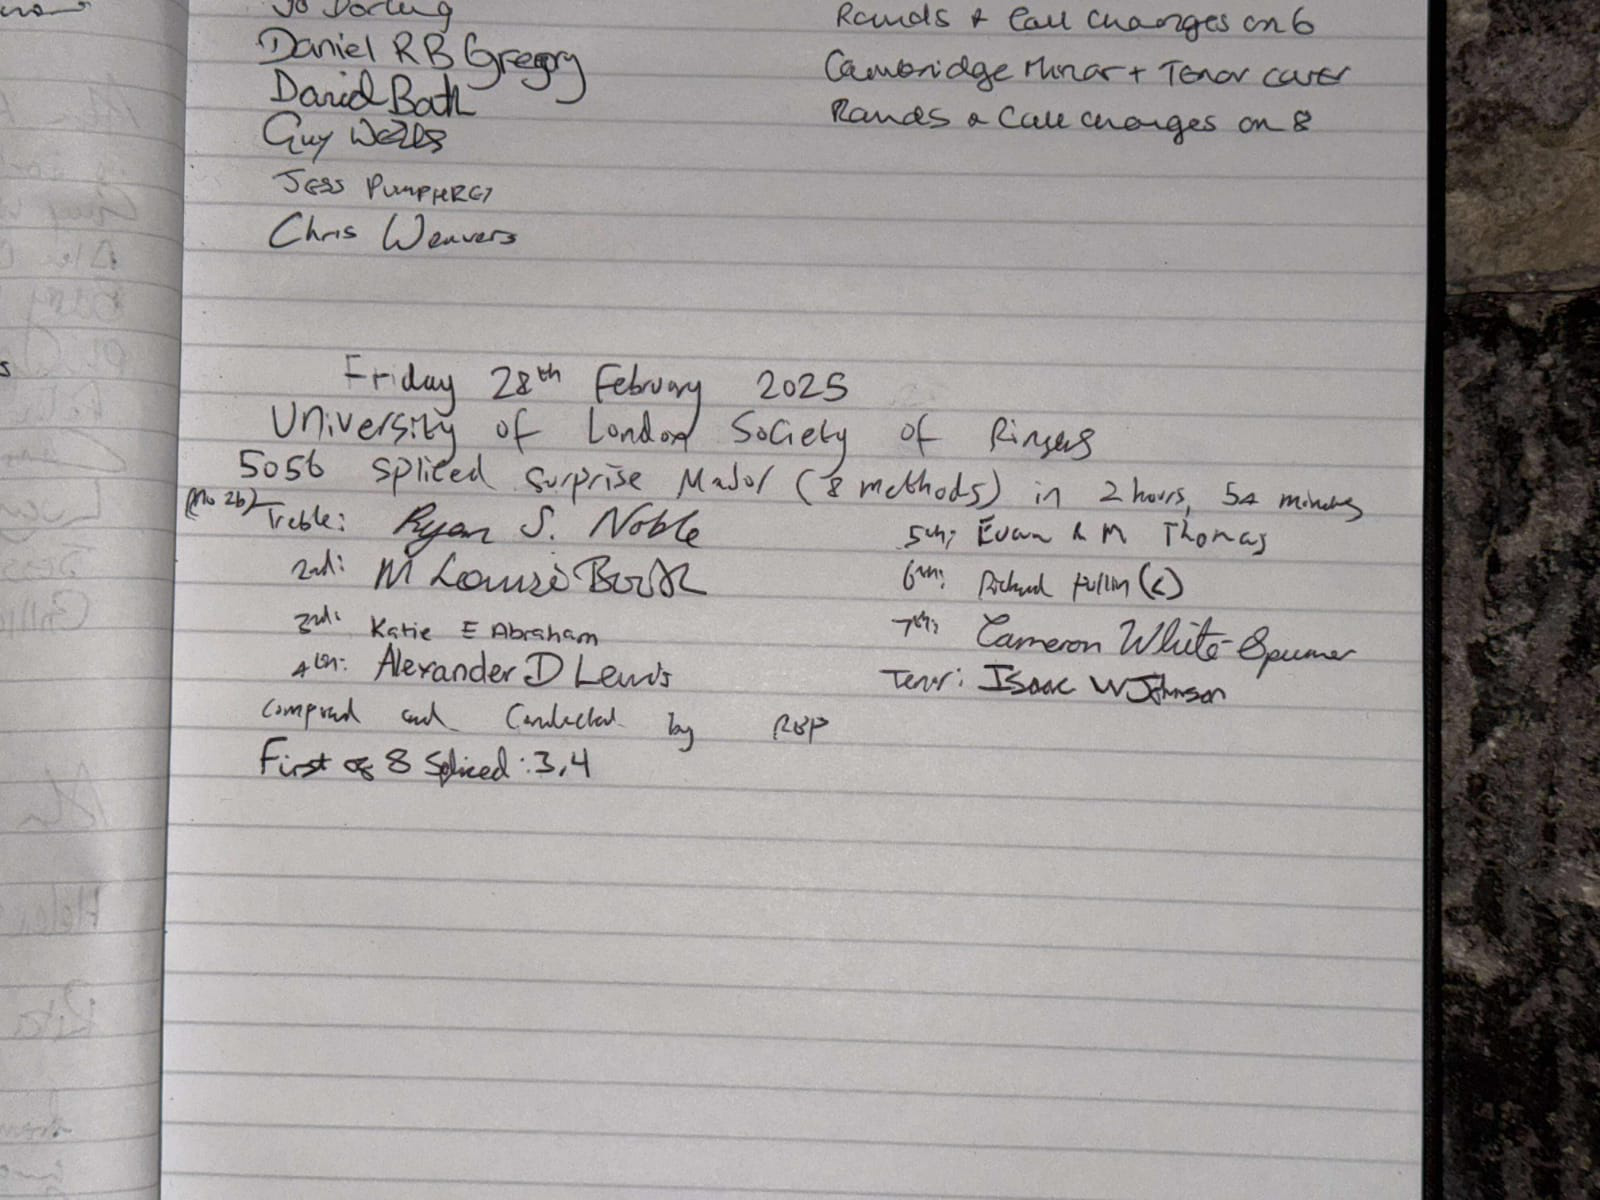 Jo Darling
Daniel RB Gregory
David Bath
Guy Wells
Jess PUMPHREY
Chris Weavers
Rounds + Call Changes on 6
Cambridge Minor + Tenor cover
Rounds & Call changes on 8
Friday 28th February 2025
University of London Society of Ringers
5056 Spliced Surprise Major (8 methods) in 2 hours, 54 minutes
(No 26)
Treble: Ryan S. Noble
2nd: M Louise Booth
3rd: Katie E Abraham
4th: Alexander D Lewis
5th: Euan R M Thomas
6th: Richard Pullin (C)
7th: Cameron White-Spunner
Tenor: Isaac W Johnson
Composed and Conducted by RBP
First of 8 Spliced: 3,4